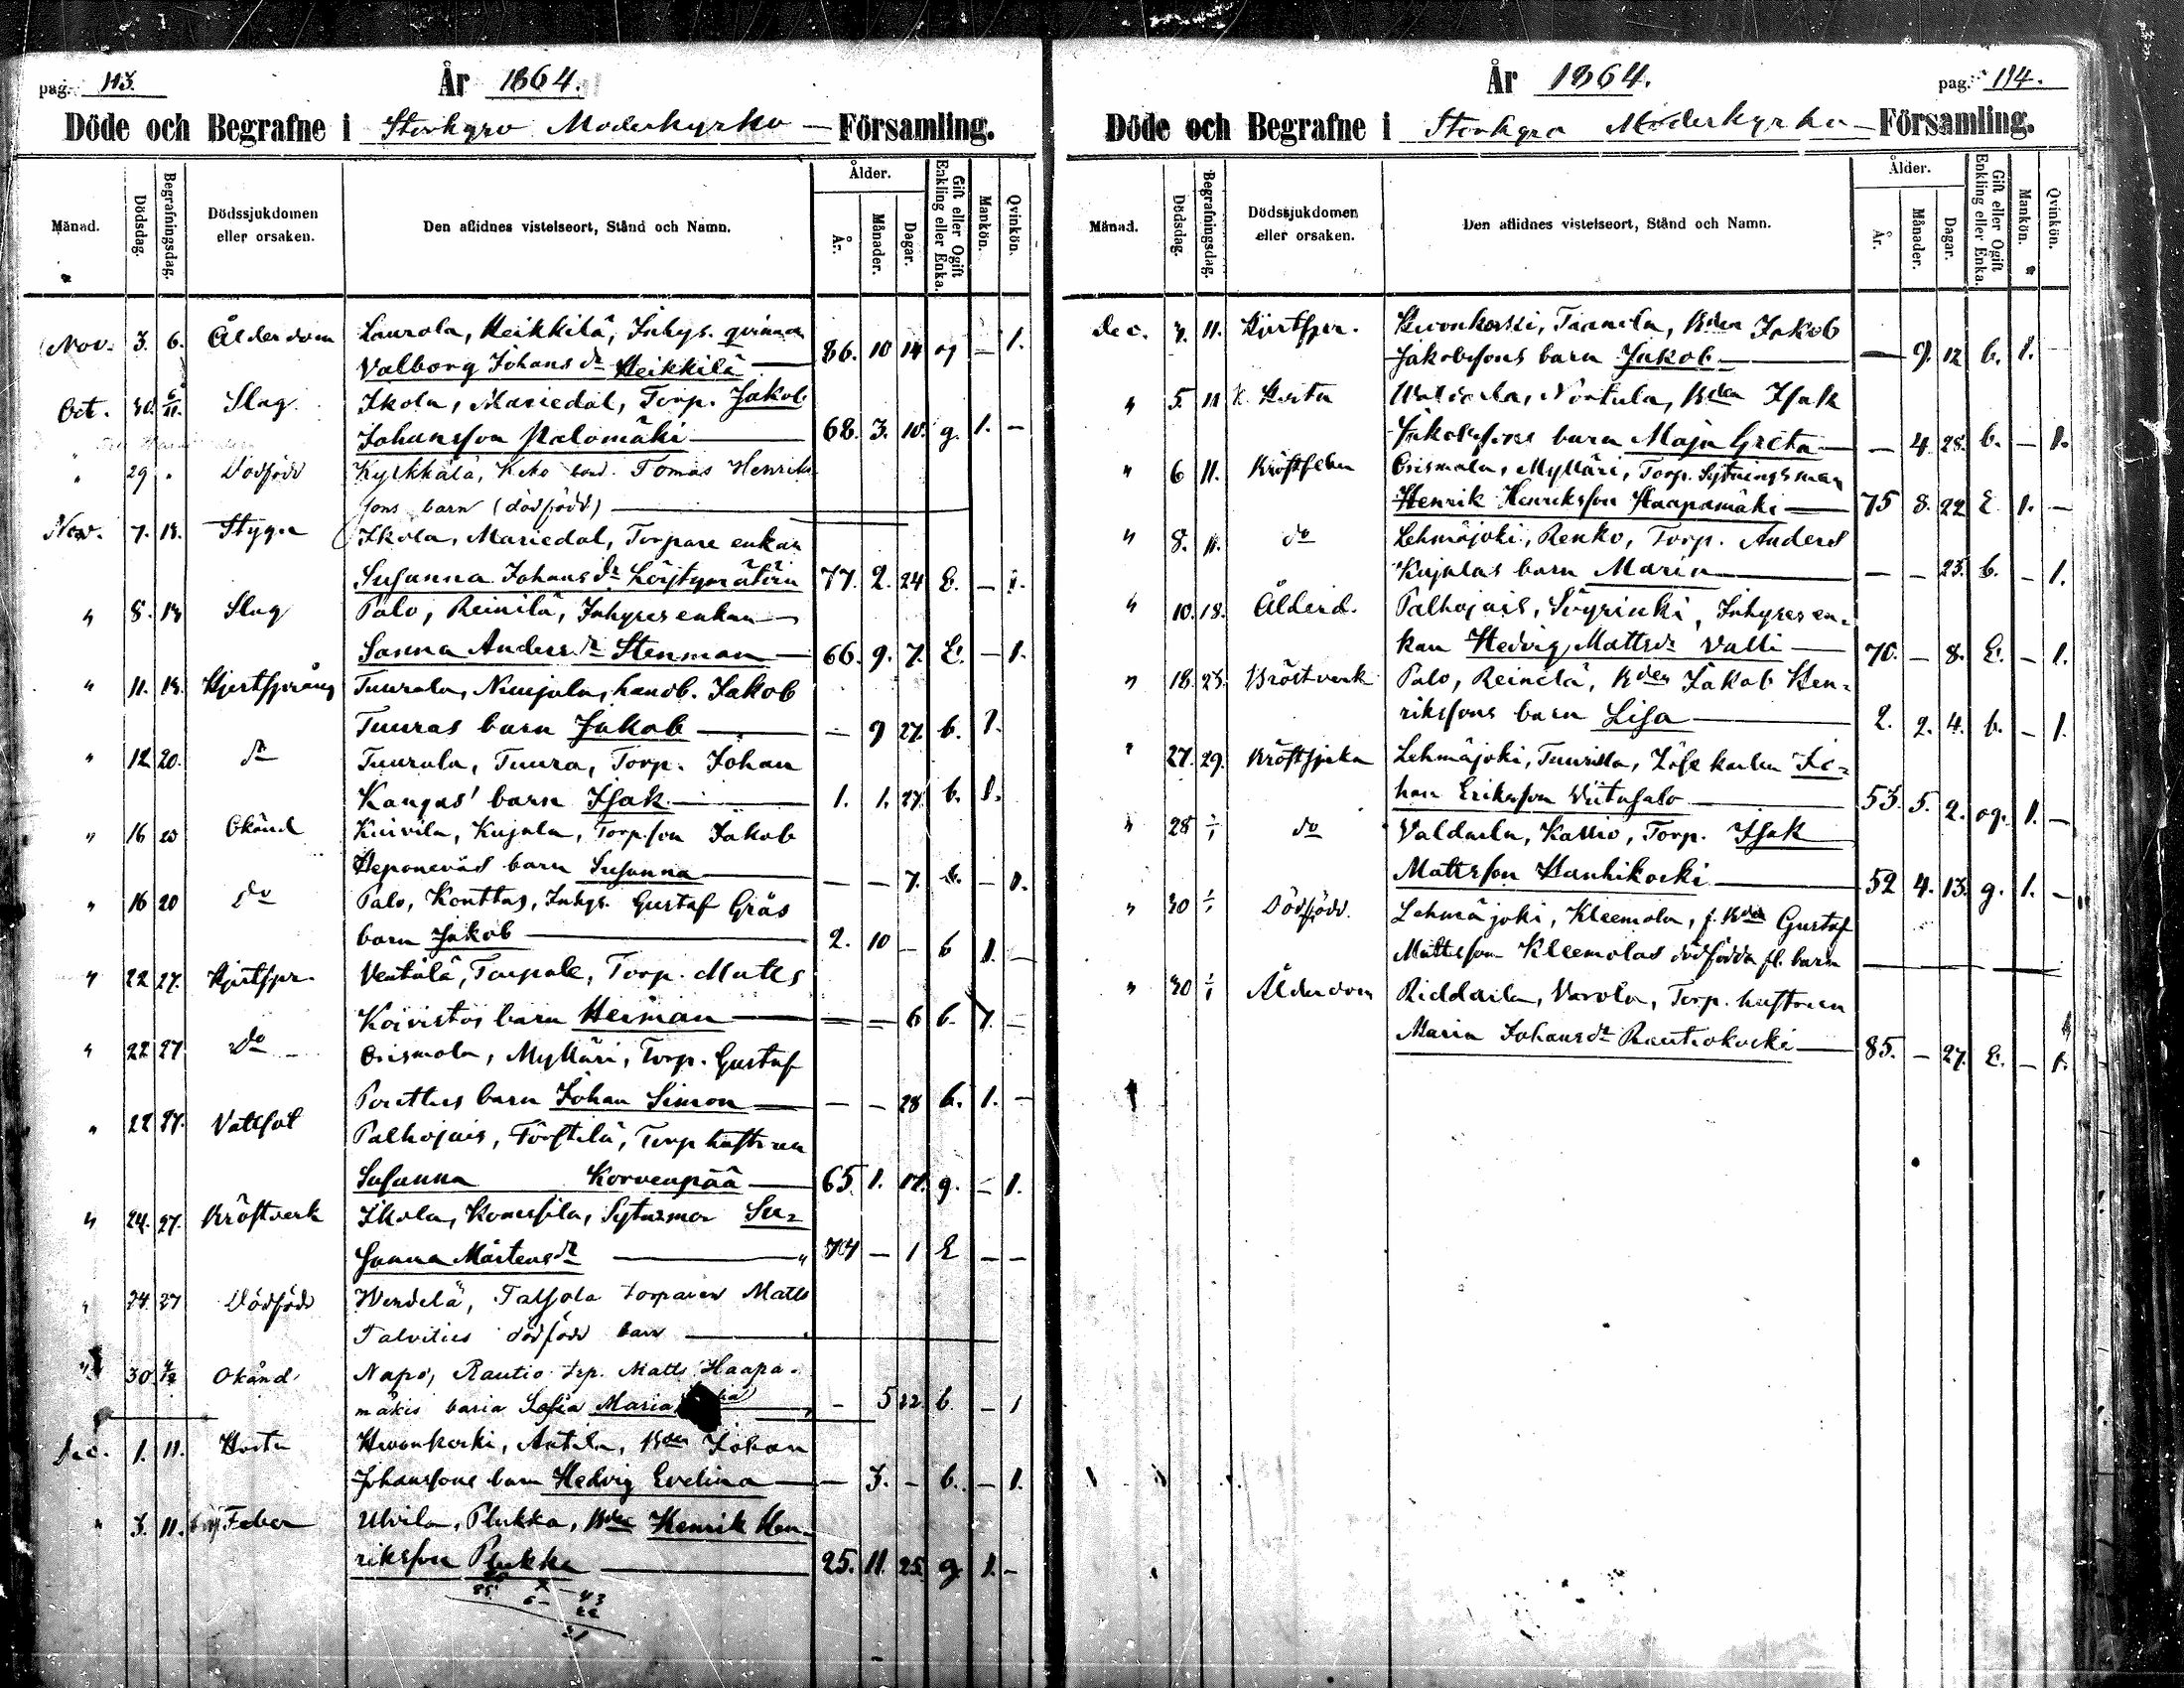 pag. 113.
År 1864.
Döde och Begrafne i Storkyro Moderkyrko Församling.
Månad.
Dödsdag.
Begrafningsdag.
Dödssjukdomen eller orsaken.
Den aflidnes vistelseort, Stånd och Namn.
Ålder.
År.
Månader.
Dagar.
Gift eller Ogift Enkling eller Enka.
Mankön.
Qvinkön.
Nov. 3. 6. Ålderdom Laurola, Heikkilä, Inhys. qvinnan
Valborg Johansdr Heikkilä — 86. 10 14 og — 1.
Oct. 30. 6/11. Slag Ikola, Mariedal, Torp. Jakob
Johansson Palomäki — 68. 3. 10. g. 1. —
" 29 " Dödfödd Kyrkkälä, Keko bond. Tomas Henriks
sons barn (dödfödd) —
Nov. 7. 13. Stygn Ikola, Mariedal, Torpare enkan
Susanna Johansdr 77. 2. 24 E. — 1.
" 8. 13 Slag Palo, Reinilä, Inhyses enkan
Sanna Andersdr Stenman — 66. 9. 7. E. — 1.
" 11. 13. Hjertsprång Tuurala, Nuujala, landb. Jakob
Tuuras barn Jakob — — 9 27. b. 1.
" 12 20. do Tuurala, Tuura, Torp. Johan
Kangas' barn Isak — 1. 1. 27. b. 1.
" 16 20 Okänd Kuivila, Kujala, Torp.son Jakob
Heponeväs barn Susanna — — — 7. b. — 1.
" 16 20 do Palo, Konttas, Inhys. Gustaf Gräs
barn Jakob — 2. 10 — b 1. —
" 22 27. Hjertspr. Ventälä, Taipale, Torp. Matts
Koivistos barn Herman — — — 6 b. 1. —
" 22 27 do Orismala, Mylläri, Torp. Gustaf
Porttus barn Johan Simon — — — 28 b. 1. —
" 22 27. Vattsot Palhojais, Förstilä, Torp hustrun
Susanna Korvenpää — 65. 1. 17. g. — 1.
" 24. 27. Bröstverk Ikola, Sytn:mor Su-
sanna Mårtensdr — 77 — 1 E — —
" 24. 27 Dödfödd Wendelä, Talsola torparen Matts
Talvities dödfödd barn —
" 30. 4/12 Okänd Napo, Rautio trp. Matts Haapa-
mäkis barn Sofia Maria — 5 22. b. — 1
Dec. 1. 11. Hosta Hevonkoski, Antila, Bden Johan
Johanssons barn Hedvig Evelina — — 3. — b. — 1.
" 3. 11. Feber Ulvila, Plukka, Bden Henrik Hen-
riksson Plukka — 25. 11. 25. g. 1. —
pag. 114.
År 1864.
Döde och Begrafne i Storkyro Moderkyrko Församling.
Månad.
Dödsdag.
Begrafningsdag.
Dödssjukdomen eller orsaken.
Den aflidnes vistelseort, Stånd och Namn.
Ålder.
År.
Månader.
Dagar.
Gift eller Ogift Enkling eller Enka.
Mankön.
Qvinkön.
Dec. 11. Hjertspr. Hevonkoski, Taanila, Bden Jakob
Jakobssons barn Jakob — — 9. 12 b. 1.
" 5. 11 K. Hosta Nortula, Bden Isak
Jakobssons barn Maja Greta — — 4. 28. b. — 1.
" 6 11. Bröstfeber Orismala, Mylläri, Torp. Sytningsman
Henrik Henriksson Haapamäki — 75 8. 22 E. 1. —
" 8. 11. do Lehmäjoki, Renko, Torp. Anders
Kujalas barn Maria — — — 23. b. — 1.
" 10. 18. Ålderd. Palhojais, Söyrinki, Inhyses en-
kan Hedvig Mattsdr Valli — 70. — 8. E. — 1.
" 18. 25. Bröstverk Palo, Reinilä, Bden Jakob Hen-
rikssons barn Lisa — 2. 2. 4. b. — 1.
" 27. 29. Bröstsjuka Lehmäjoki, Tuurila, Lösekarlen Jo-
han Eriksson Viitasalo — 53. 5. 2. og. 1. —
" 28 1/1 do Valdarla, Kassio, Torp. Isak
Mattsson Hanhikoski — 52 4. 13. g. 1. —
" 30 1/1 Dödfödd. Lehmäjoki, Kleemola, f. Bden Gustaf
Mattsson Kleemolas dödfödda fl. barn —
" 30 1/1 Ålderdom Riddarla, Varola, Torp. hustrun
Maria Johansdr Rautiokoski — 85. — 27. E. — 1.